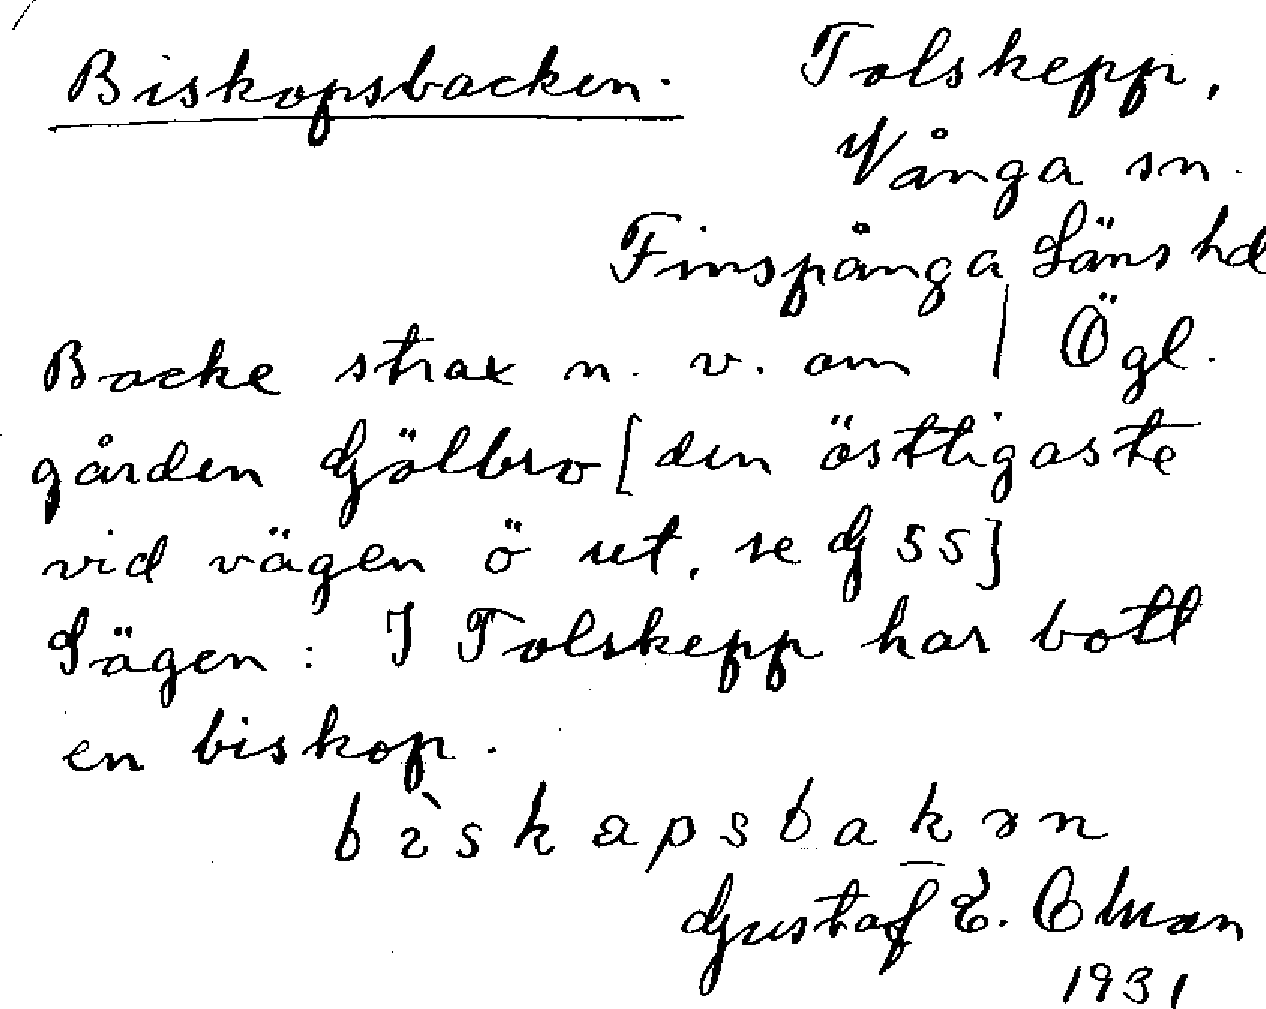 Biskopsbacken. Tolskepp,
Vånga sn.
Finspånga Läns hd
Backe strax n. v. om | Ögl.
gården Gölbro [den östligaste
vid vägen ö ut, se G 55]
Sägen: I Tolskepp har bott
en biskop.
bìskapsbakən
Gustaf E. Ohman
1931